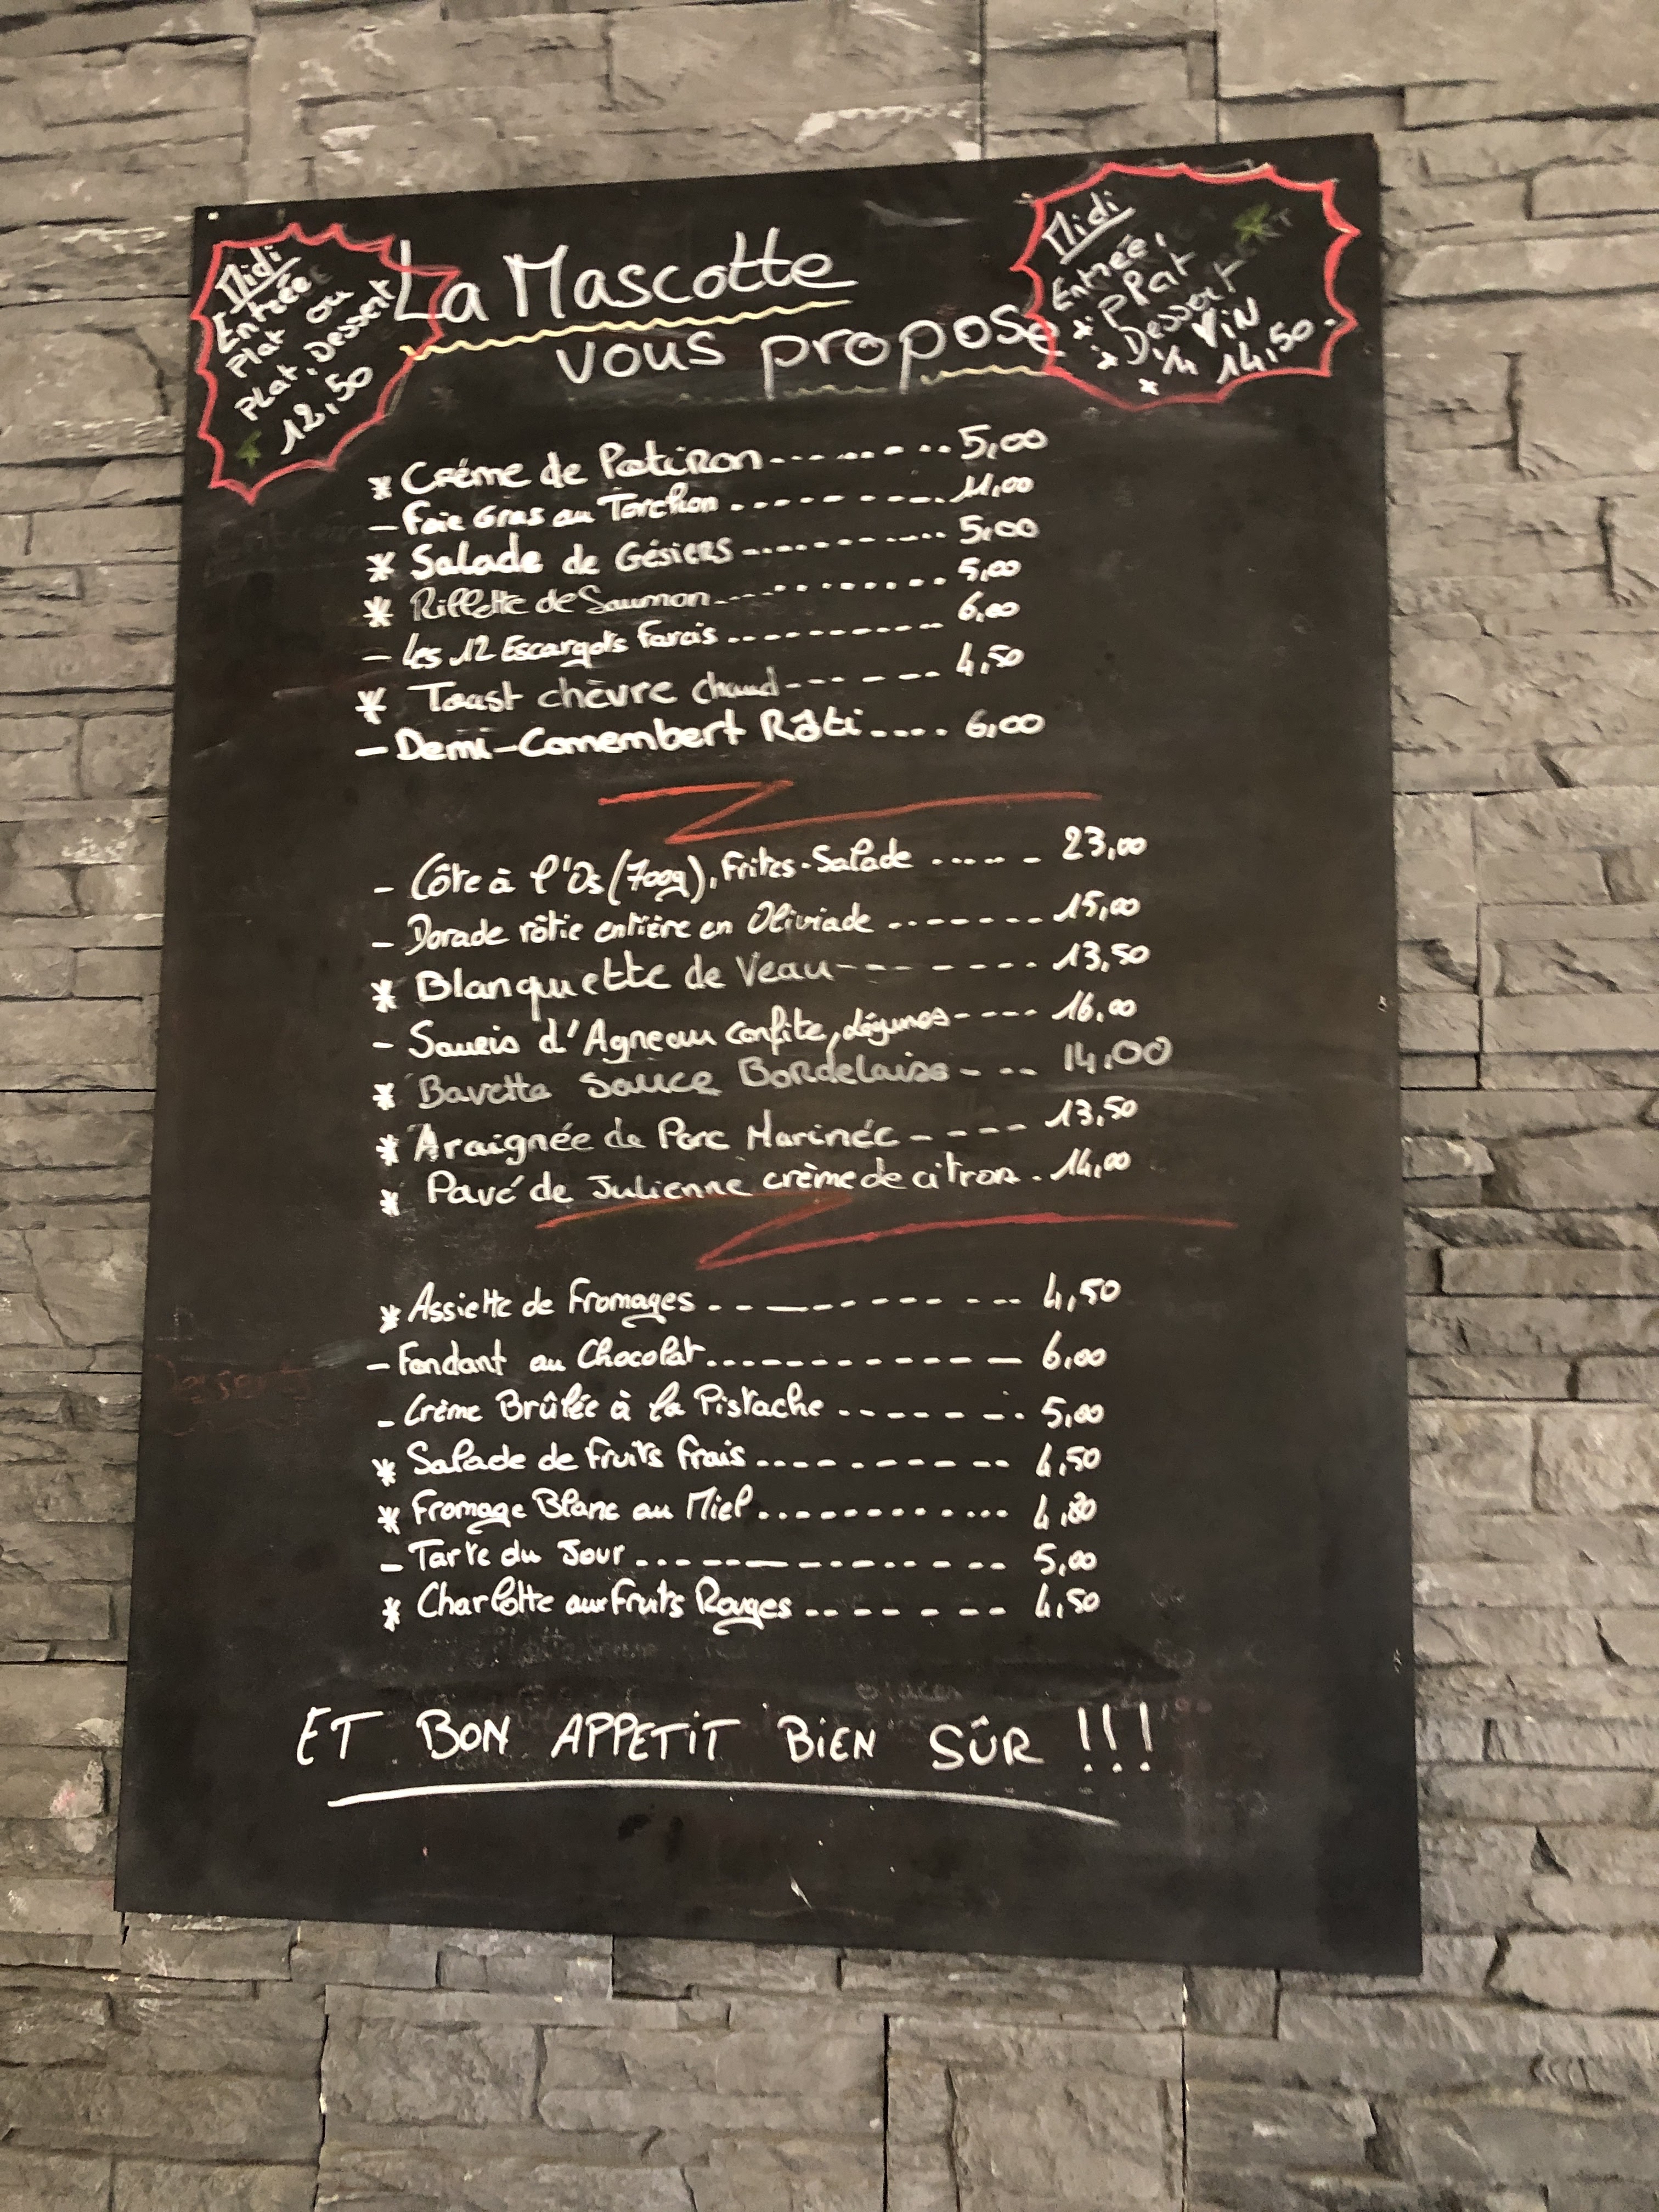 Midi
Entrée
Plat ou
Plat, Dessert
12,50
La Mascotte
vous propose
Midi
Entrée,
* Plat
* Dessert
* Vin
14,50
* Créme de Potiron 5,00
- Foie Gras au Torchon 11,00
* Salade de Gésiers 5,00
* Rillette de Saumon 5,00
- Les 12 Escargots Farcis 6,00
* Toast chèvre chaud 4,50
- Demi-Camembert Rôti 6,00
- Côte à l'Os (700g), Frites-Salade 23,00
- Dorade rôtie entière en Oliviade 15,00
* Blanquette de Veau 13,50
- Souris d'Agneau confite, légumes 16,00
* Bavette Sauce Bordelaise 14,00
* Araignée de Porc Marinée 13,50
* Pavé de Julienne crème de citron 14,00
* Assiette de Fromages 4,50
- Fondant au Chocolat 6,00
- Crème Brûlée à la Pistache 5,00
* Salade de Fruits Frais 4,50
* Fromage Blanc au Miel
- Tarte du Jour 5,00
* Charlotte aux Fruits Rouges 4,50
ET BON APPETIT BIEN SÛR !!!